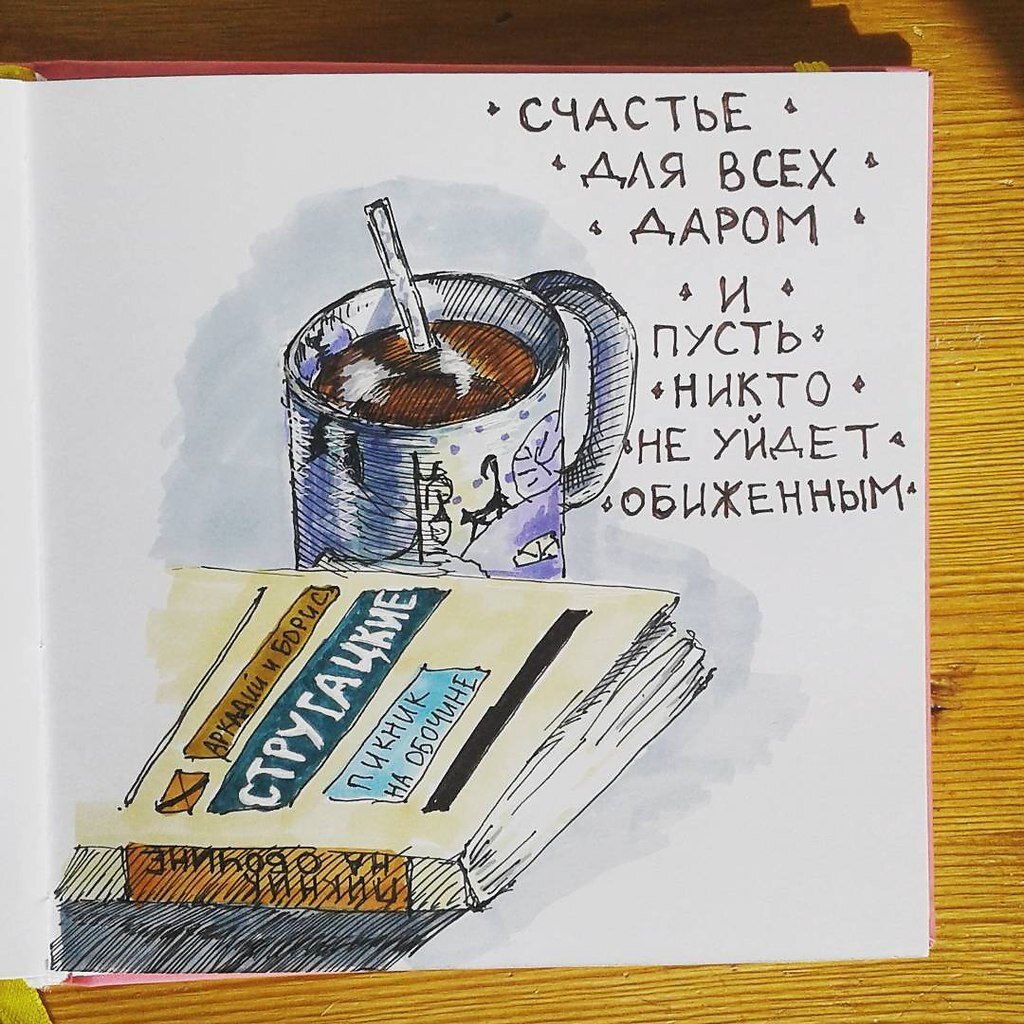 СЧАСТЬЕ
ДЛЯ ВСЕХ
ДАРОМ
И
ПУСТЬ
НИКТО
НЕ УЙДЕТ
ОБИЖЕННЫМ
АРКАДИЙ И БОРИС
СТРУГАЦКИЕ
ПИКНИК
НА ОБОЧИНЕ
ПИКНИК
НА ОБОЧИНЕ